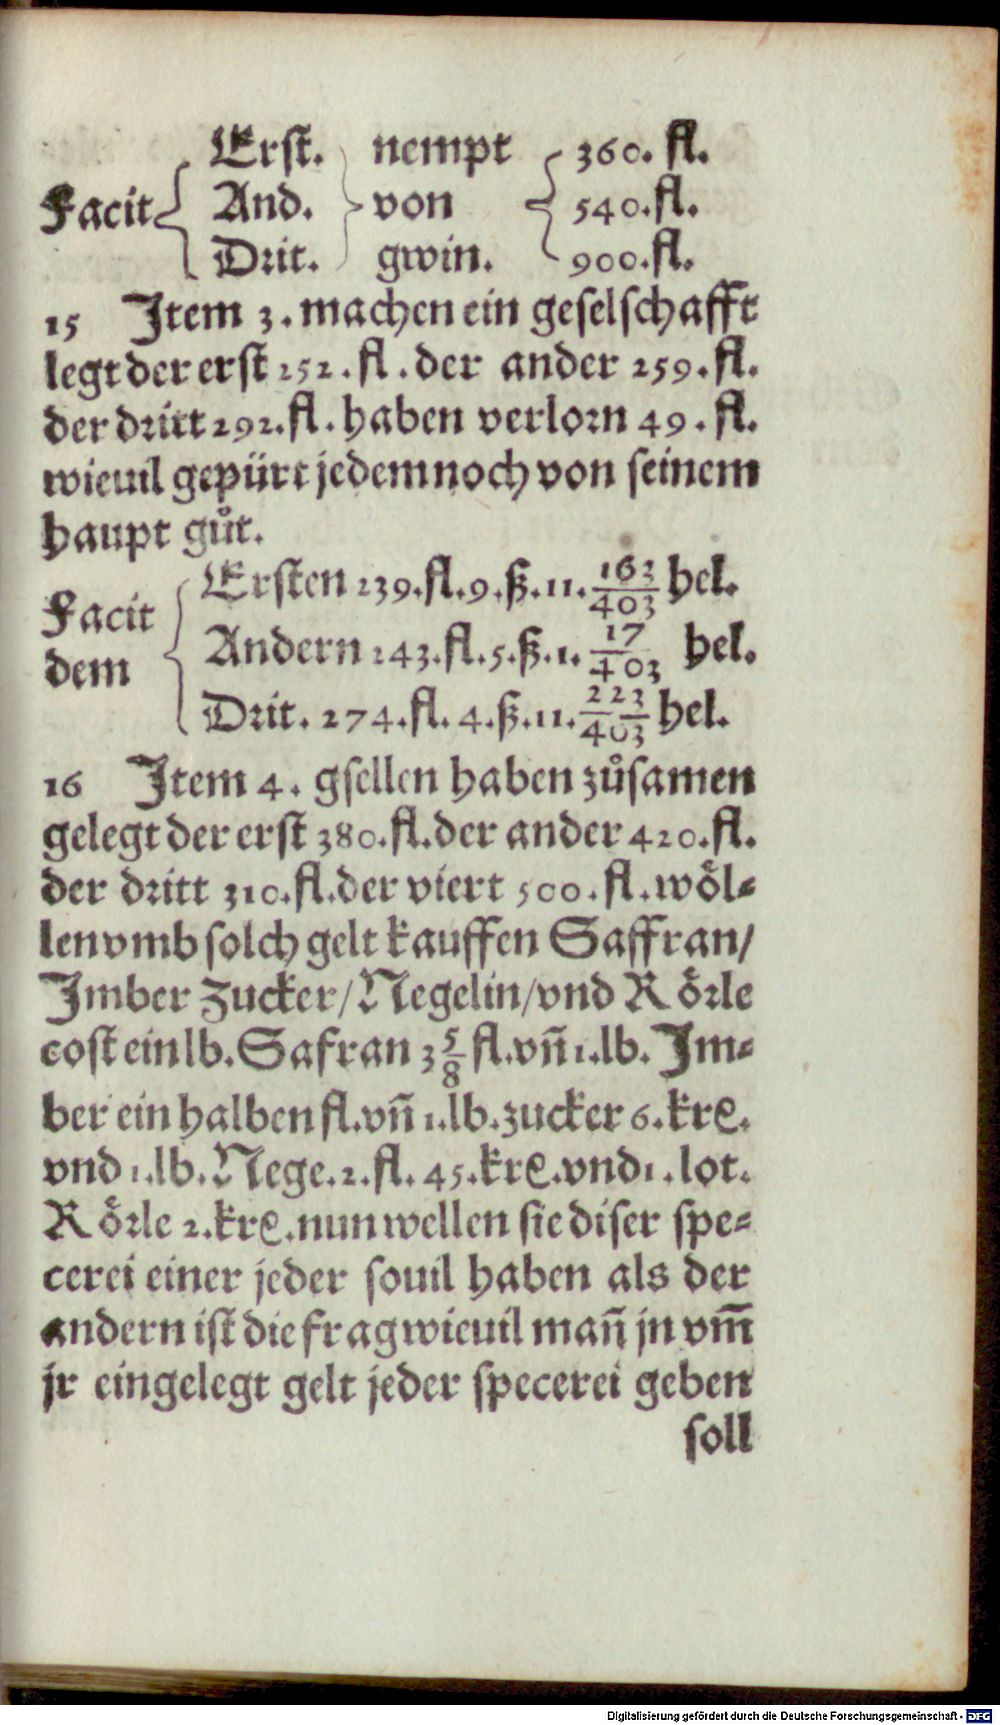 Facit { Erst. } nempt { 360. fl.
And. } von { 540. fl.
Drit. } gwin. { 900. fl.
15 Jtem 3. machen ein geselschafft
legt der erst 252. fl. der ander 259. fl.
der dritt 292. fl. haben verlorn 49. fl.
wieuil gepürt jedem noch von seinem
haupt gůt.
Facit dem { Ersten 239. fl. 9. ß. 11. 163/403 hel.
Andern 243. fl. 5. ß. 1. 17/403 hel.
Drit. 274. fl. 4. ß. 11. 223/403 hel.
16 Jtem 4. gsellen haben zůsamen
gelegt der erst 380. fl. der ander 420. fl.
der dritt 310. fl. der viert 500. fl. wöl⸗
len vmb solch gelt kauffen Saffran/
Jmber Zucker/ Negelin/ vnd Rörle
cost ein lb. Safran 3 5/8 fl. vn̄ 1. lb. Jm⸗
ber ein halben fl. vn̄ 1. lb. zucker 6. krꝭ.
vnd 1. lb. Nege. 2. fl. 45. krꝭ. vnd 1. lot.
Rörle 2. krꝭ. nun wellen sie diser spe⸗
cerei einer jeder souil haben als der
andern ist die frag wieuil man̄ jn vm̄
jr eingelegt gelt jeder specerei geben
soll
Digitalisierung gefördert durch die Deutsche Forschungsgemeinschaft - DFG